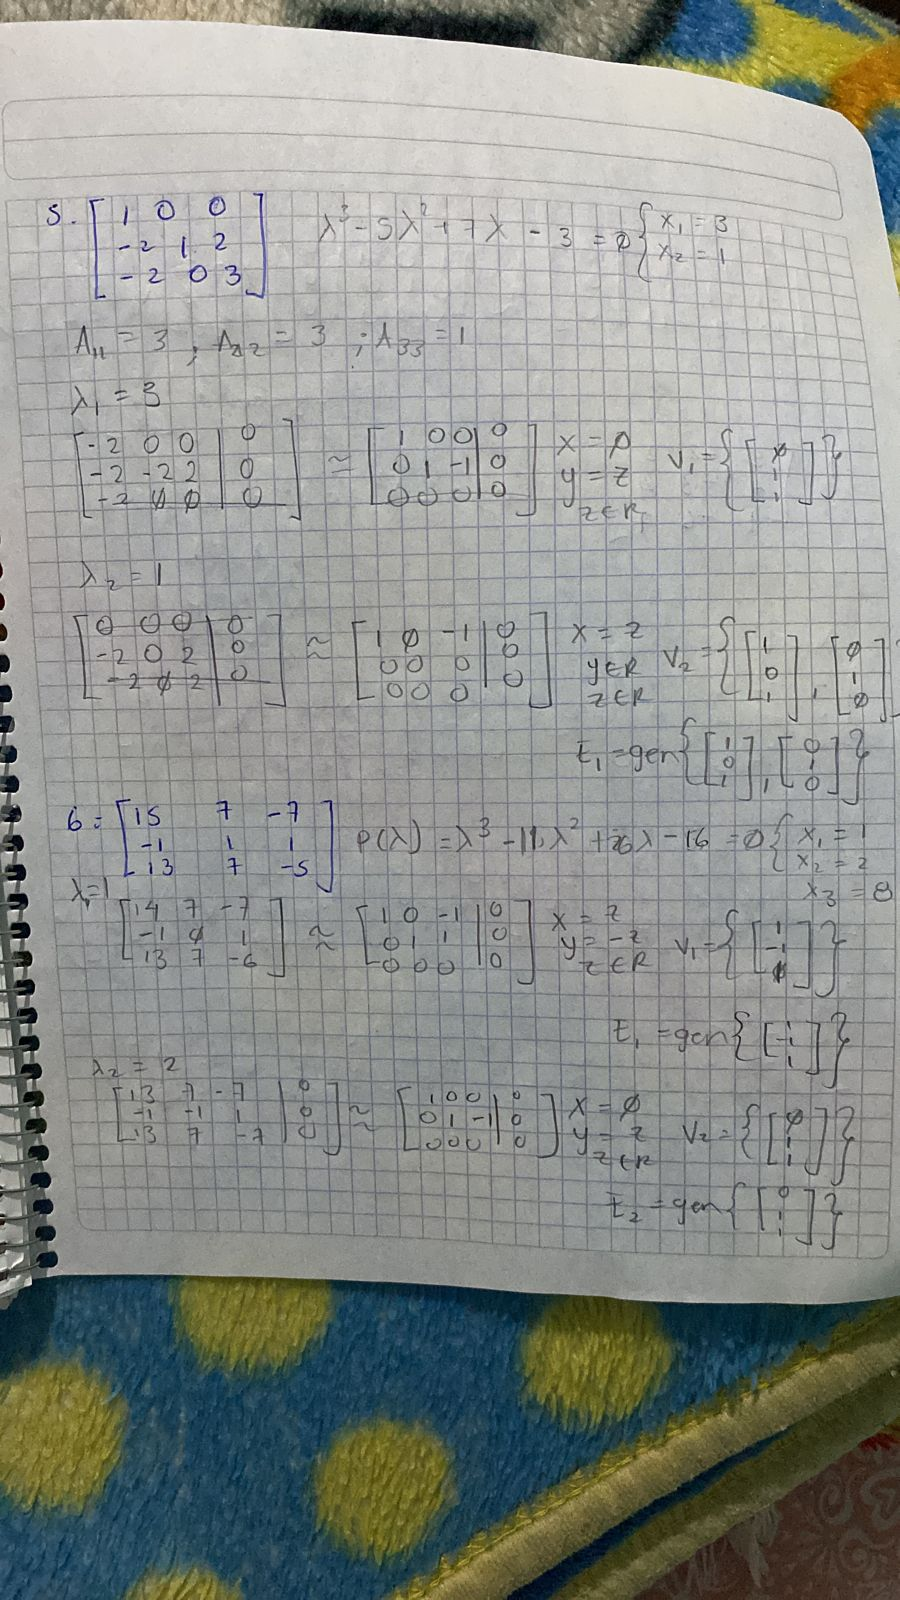 5. [1 0 0; -2 1 2; -2 0 3] λ³ - 5λ² + 7λ - 3 = 0 { x₁ = 3
x₂ = 1
A₁₁ = 3 ; A₂₂ = 3 ; A₃₃ = 1
λ₁ = 3
[-2 0 0 | 0; -2 -2 2 | 0; -2 0 0 | 0] ≃ [1 0 0 | 0; 0 1 -1 | 0; 0 0 0 | 0] x = 0 y = z z∈R V₁ = {[0 1 1]}
λ₂ = 1
[0 0 0 | 0; -2 0 2 | 0; -2 0 2 | 0] ≈ [1 0 -1 | 0; 0 0 0 | 0; 0 0 0 | 0] x = z y∈R z∈R V₂ = {[1 0 1], [0 1 0]
E₁ = gen{[1 0 1], [0 1 0]}
6= [15 7 -7; -1 1 1; 13 7 -5] P(λ) = λ³ - 11λ² + 26λ - 16 = 0 { x₁ = 1
x₂ = 2
x₃ = 8
λ₁=1
[14 7 -7; -1 0 1; 13 7 -6] ≈ [1 0 -1 | 0; 0 1 1 | 0; 0 0 0 | 0] x = z y = -z z∈R V₁ = {[1 -1 1]}
E₁ = gen{[1 -1 1]}
λ₂ = 2
[13 7 -7 | 0; -1 -1 1 | 0; 13 7 -7 | 0] ≈ [1 0 0 | 0; 0 1 -1 | 0; 0 0 0 | 0] x = 0 y = z z∈R V₂ = {[0 1 1]}
E₂ = gen{[0 1 1]}